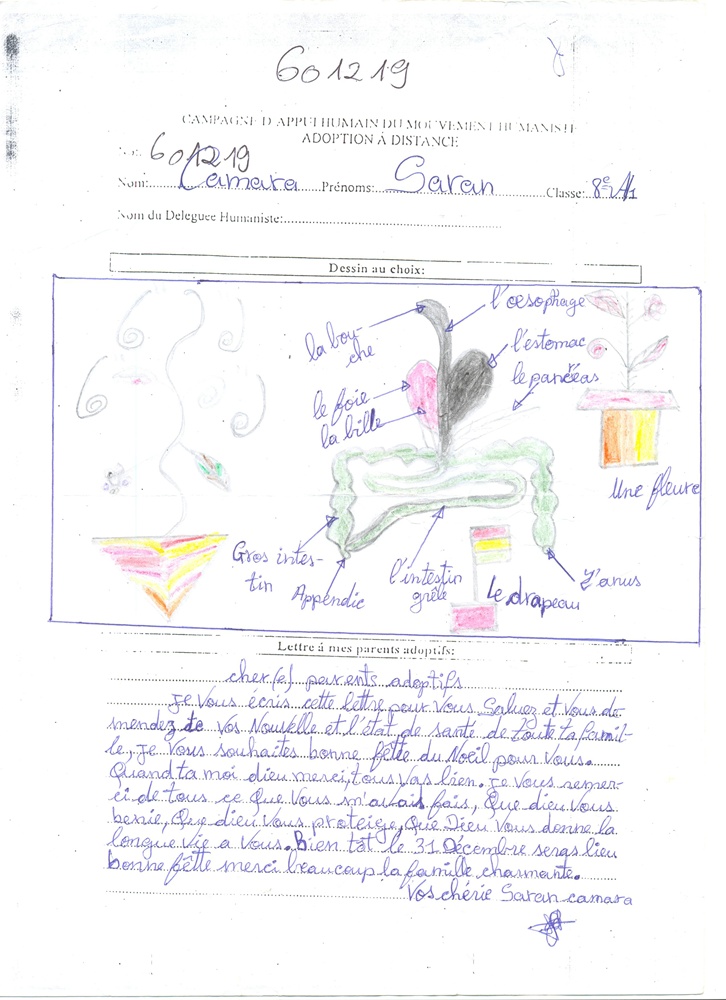 601219
CAMPAGNE D'APPUI HUMAIN DU MOUVEMENT HUMANISTE
ADOPTION À DISTANCE
No: 601219
Nom: Camara Prénoms: Saran Classe: 8e A/1
Nom du Deleguee Humaniste:
Dessin au choix:
l'œsophage
la bou-
che
l'estomac
le pancréas
le foie
la bille
Une fleure
Gros intes-
tin
Appendic
l'intestin
grêle
Le drapeau
L'anus
Lettre à mes parents adoptifs:
cher(e) parents adoptifs
Je Vous écris cette lettre pour Vous Saluez et Vous de-
mendez de Vos Nouvelle et l'état de sante de toute ta famil-
le, Je Vous souhaites bonne fêtte du Noeil pour Vous.
Quand ta moi dieu merci, tous Vas bien. Je Vous remer-
ci de tous ce Que Vous m'avais fais, Que dieu Vous
benie, Que dieu Vous proteige, Que Dieu Vous donne la
longue Vie a Vous. Bien tôt le 31 Décembre seras lieu
bonne fêtte merci beaucoup la famille charmante.
Vos chérie Saran camara